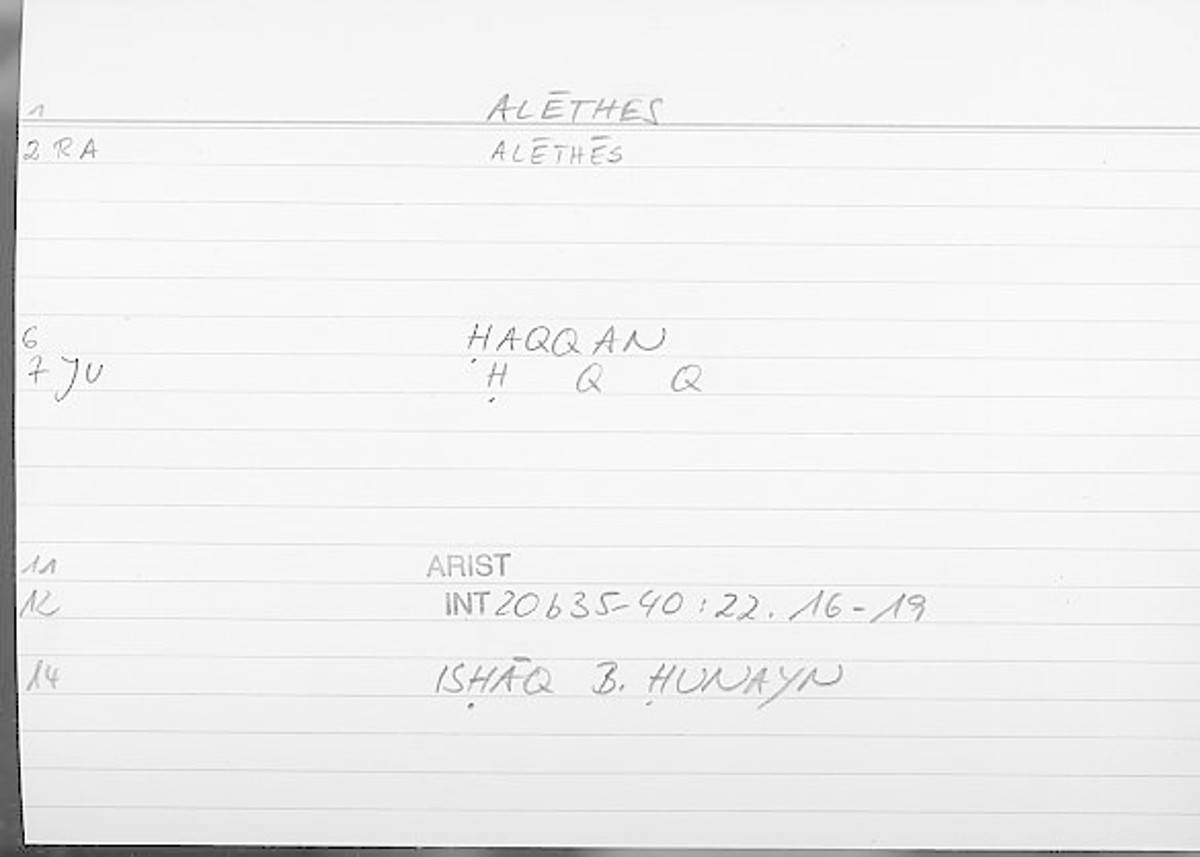 1 ALĒTHES
2 RA ALĒTHĒS
6 ḤAQQAN
7 JU Ḥ Q Q
11 ARIST
12 INT 20b35-40 : 22. 16-19
14 ISḤĀQ B. ḤUNAYN